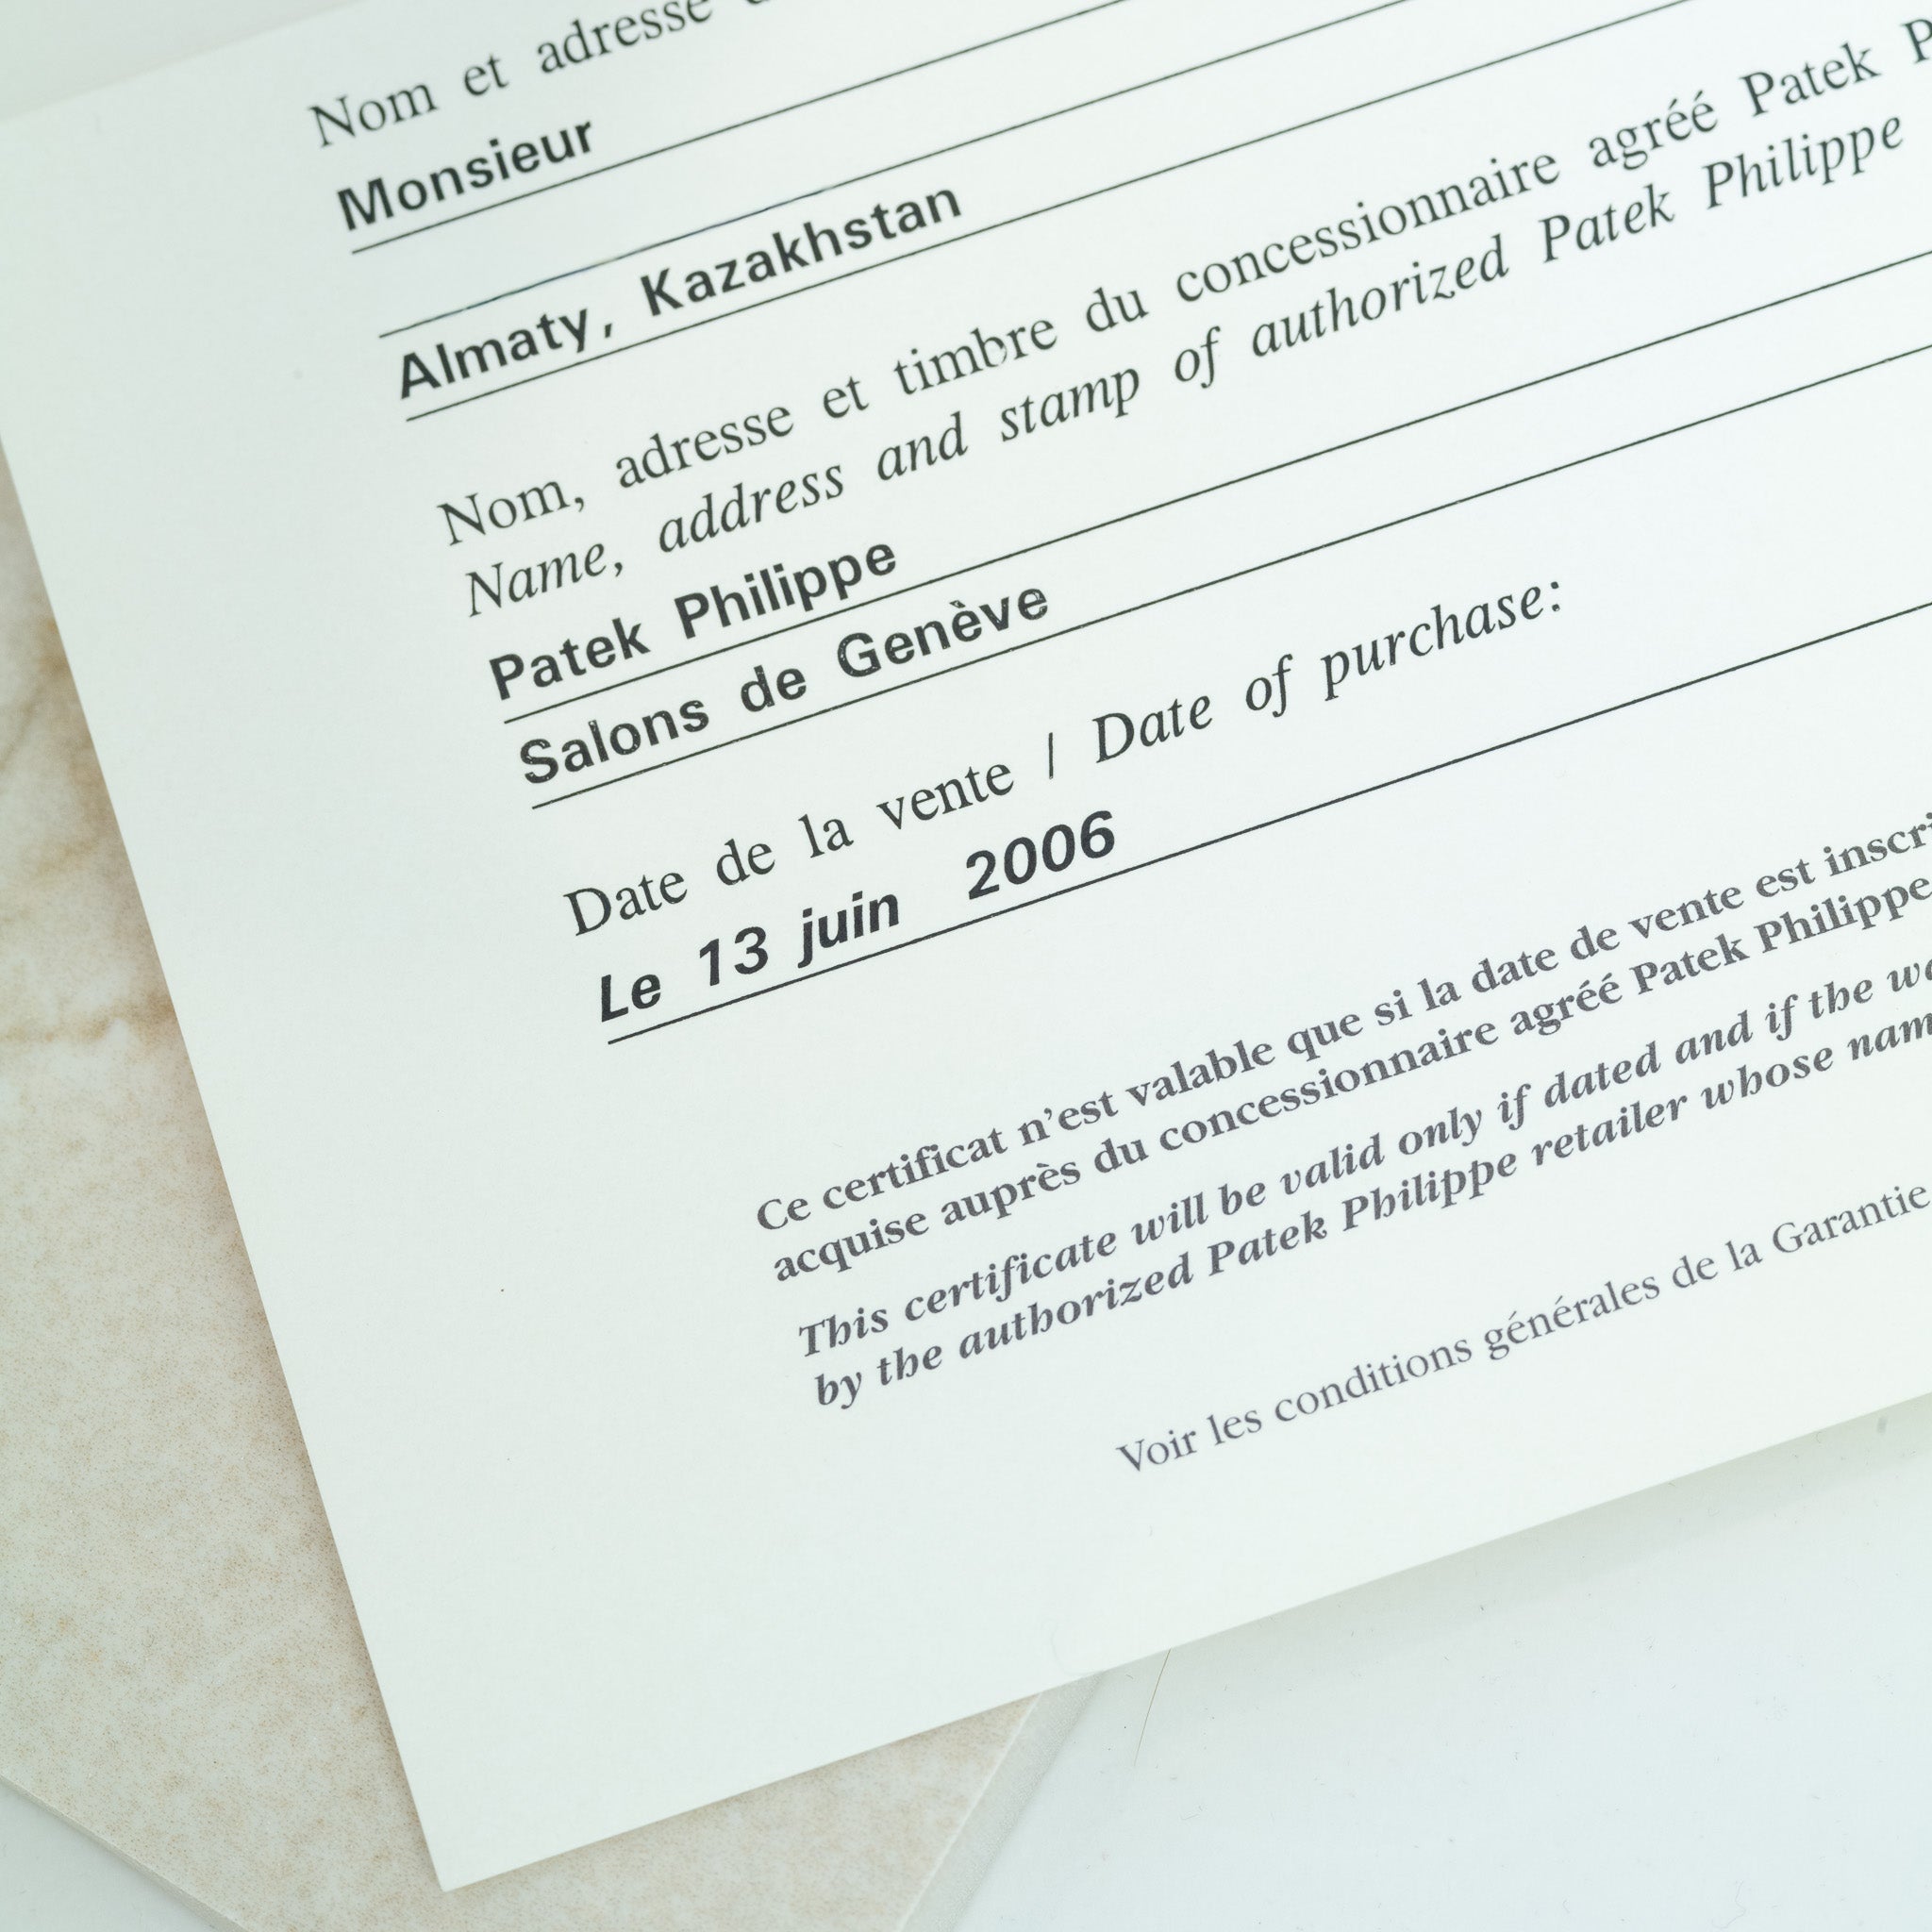 Nom et adresse
Monsieur
Almaty, Kazakhstan
Nom, adresse et timbre du concessionnaire agréé Patek
Name, address and stamp of authorized Patek Philippe
Patek Philippe
Salons de Genève
Date de la vente / Date of purchase:
Le 13 juin 2006
Ce certificat n'est valable que si la date de vente est
acquise auprès du concessionnaire agréé Patek Philippe
This certificate will be valid only if dated and if the
by the authorized Patek Philippe retailer whose
Voir les conditions générales de la Garantie